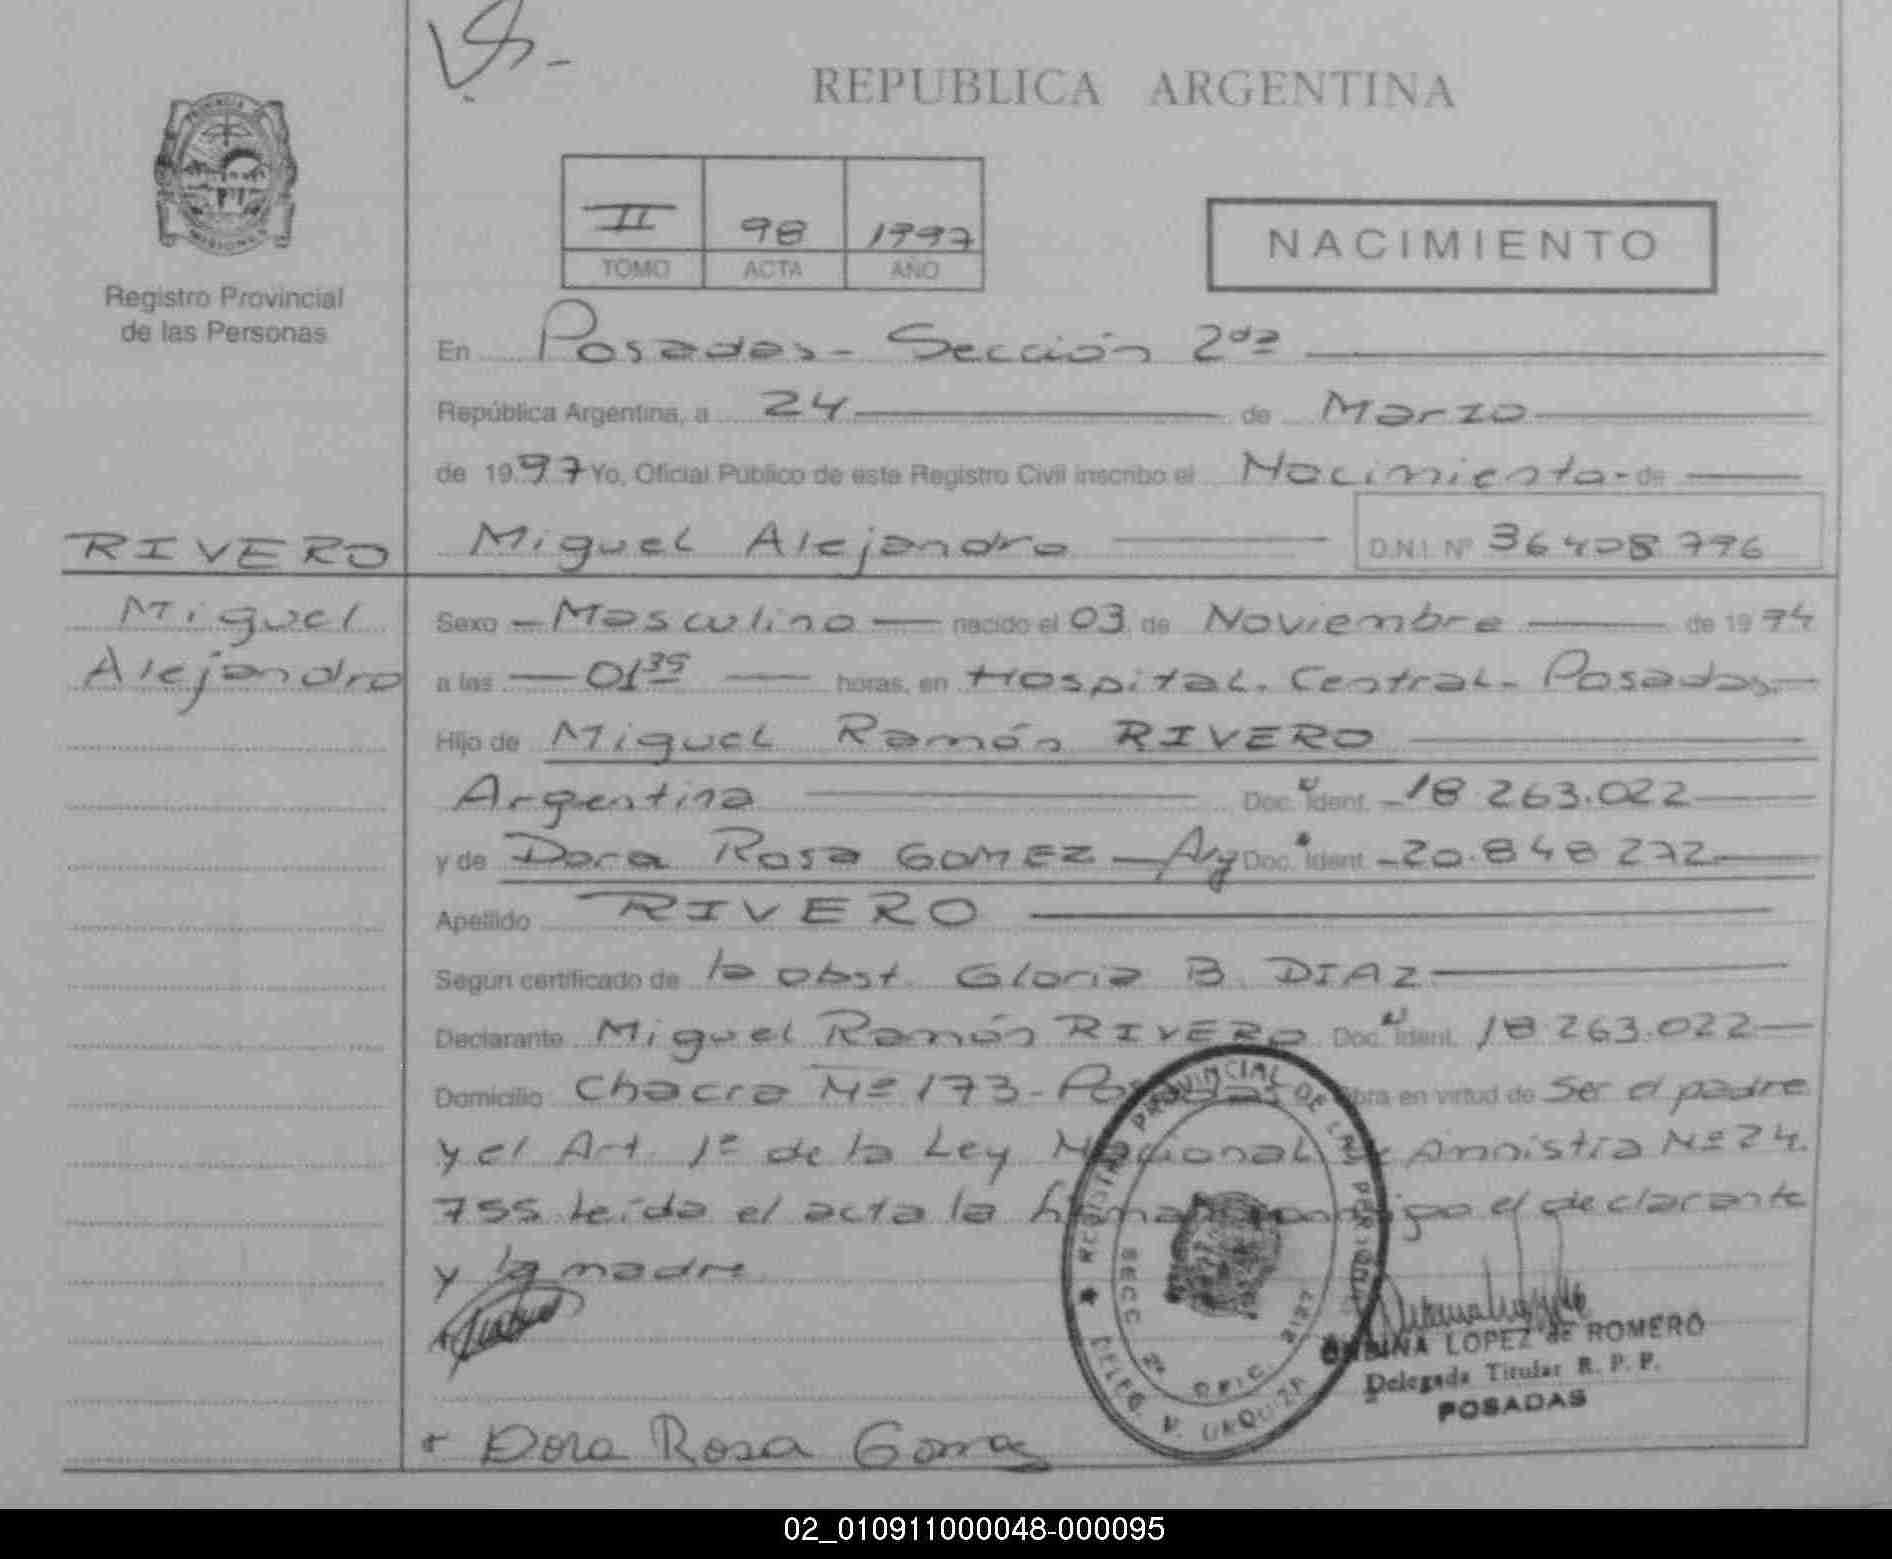 REPUBLICA ARGENTINA
PROVINCIA
MISIONES
Registro Provincial
de las Personas
II 98 1997
TOMO ACTA AÑO
NACIMIENTO
En Posadas- Sección 2da
República Argentina, a 24 de Marzo
de 1997 Yo, Oficial Público de este Registro Civil inscribo el Nacimiento- de
RIVERO Miguel Alejandro D.N.I. Nº 36408796
Miguel
Alejandro
Sexo - Masculino nacido el 03 de Noviembre de 1974
a las 01 35 horas, en Hospital. Central- Posadas.-
Hijo de Miguel Ramón RIVERO
Argentina Doc. Ident. -18.263.022
y de Dora Rosa GOMEZ - Arg Doc. Ident. -20.848.272
Apellido RIVERO
Según certificado de la obst. Gloria B. DIAZ
Declarante Miguel Ramón RIVERO Doc. Ident. 18.263.022
Domicilio Chacra Nº 173- Posadas Obra en virtud de Ser el padre
y el Art. 1º de la Ley Nacional de Amnistia Nº 24.
755 leída el acta la firman conmigo el declarante
y la madre
REGISTRO PROVINCIAL DE LAS PERSONAS
SECC. 2ª OFIC. 2127
DELEG. V. URQUIZA
LOPEZ de ROMERO
Delegada Titular R. P. P.
POSADAS
+ Dora Rosa Gomez
02_010911000048-000095